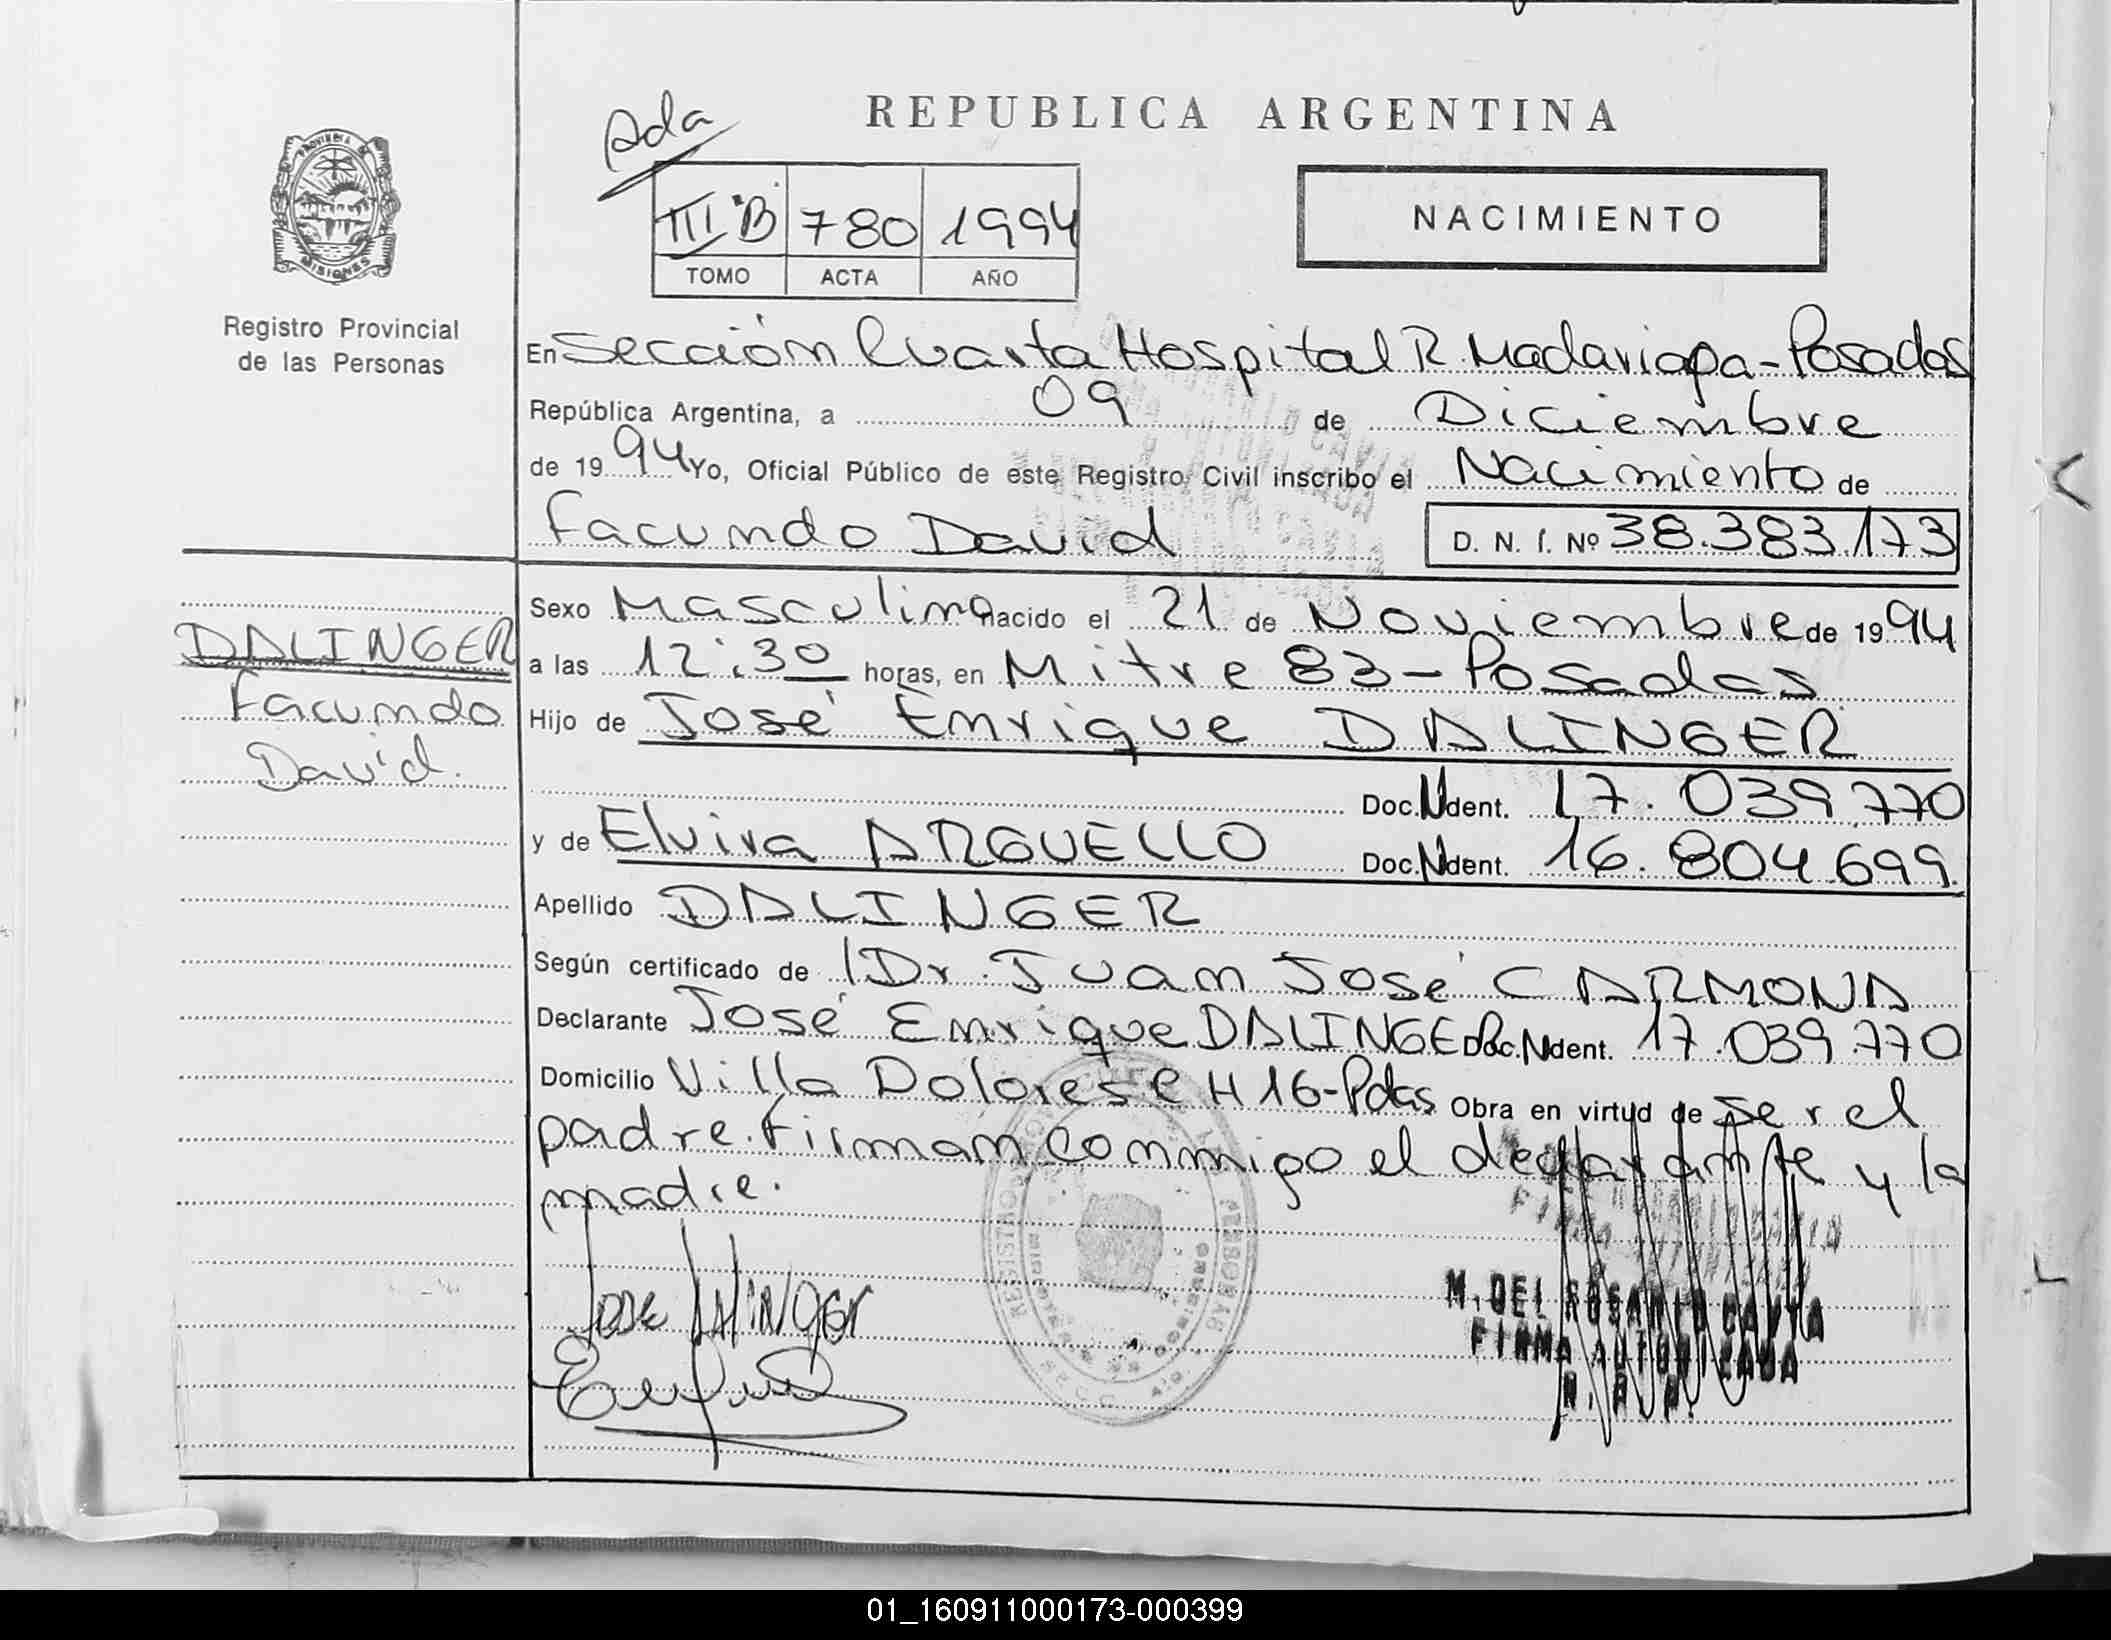 REPUBLICA ARGENTINA
Ada
III "B" 780 1994
TOMO ACTA AÑO
NACIMIENTO
PROVINCIA DE MISIONES
Registro Provincial
de las Personas
En Sección Cuarta Hospital R. Madariaga - Posadas
República Argentina, a 09 de Diciembre
de 1994 Yo, Oficial Público de este Registro Civil inscribo el Nacimiento de
Facundo David D. N. I. Nº 38.383.173
DALINGER
Facundo
David.
Sexo Masculino nacido el 21 de Noviembre de 1994
a las 12:30 horas, en Mitre 83 - Posadas
Hijo de José Enrique DALINGER
Doc. Ident. 17.039.770
y de Elvira ARGUELLO Doc. Ident. 16.804.699
Apellido DALINGER
Según certificado de Dr. Juan José CARMONA
Declarante José Enrique DALINGER Doc. Ident. 17.039.770
Domicilio Villa Dolores e H 16-Pdas Obra en virtud de ser el
padre. Firman conmigo el declarante y la
madre.
JOSE DALINGER
M. DEL ROSARIO
FIRMA AUTORIZADA
01_160911000173-000399